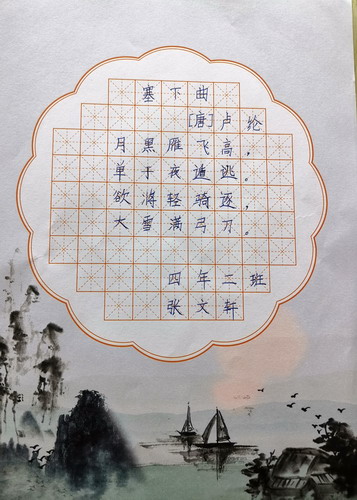 塞下曲
[唐]卢纶
月黑雁飞高，
单于夜遁逃。
欲将轻骑逐，
大雪满弓刀。
四年二班
张文轩